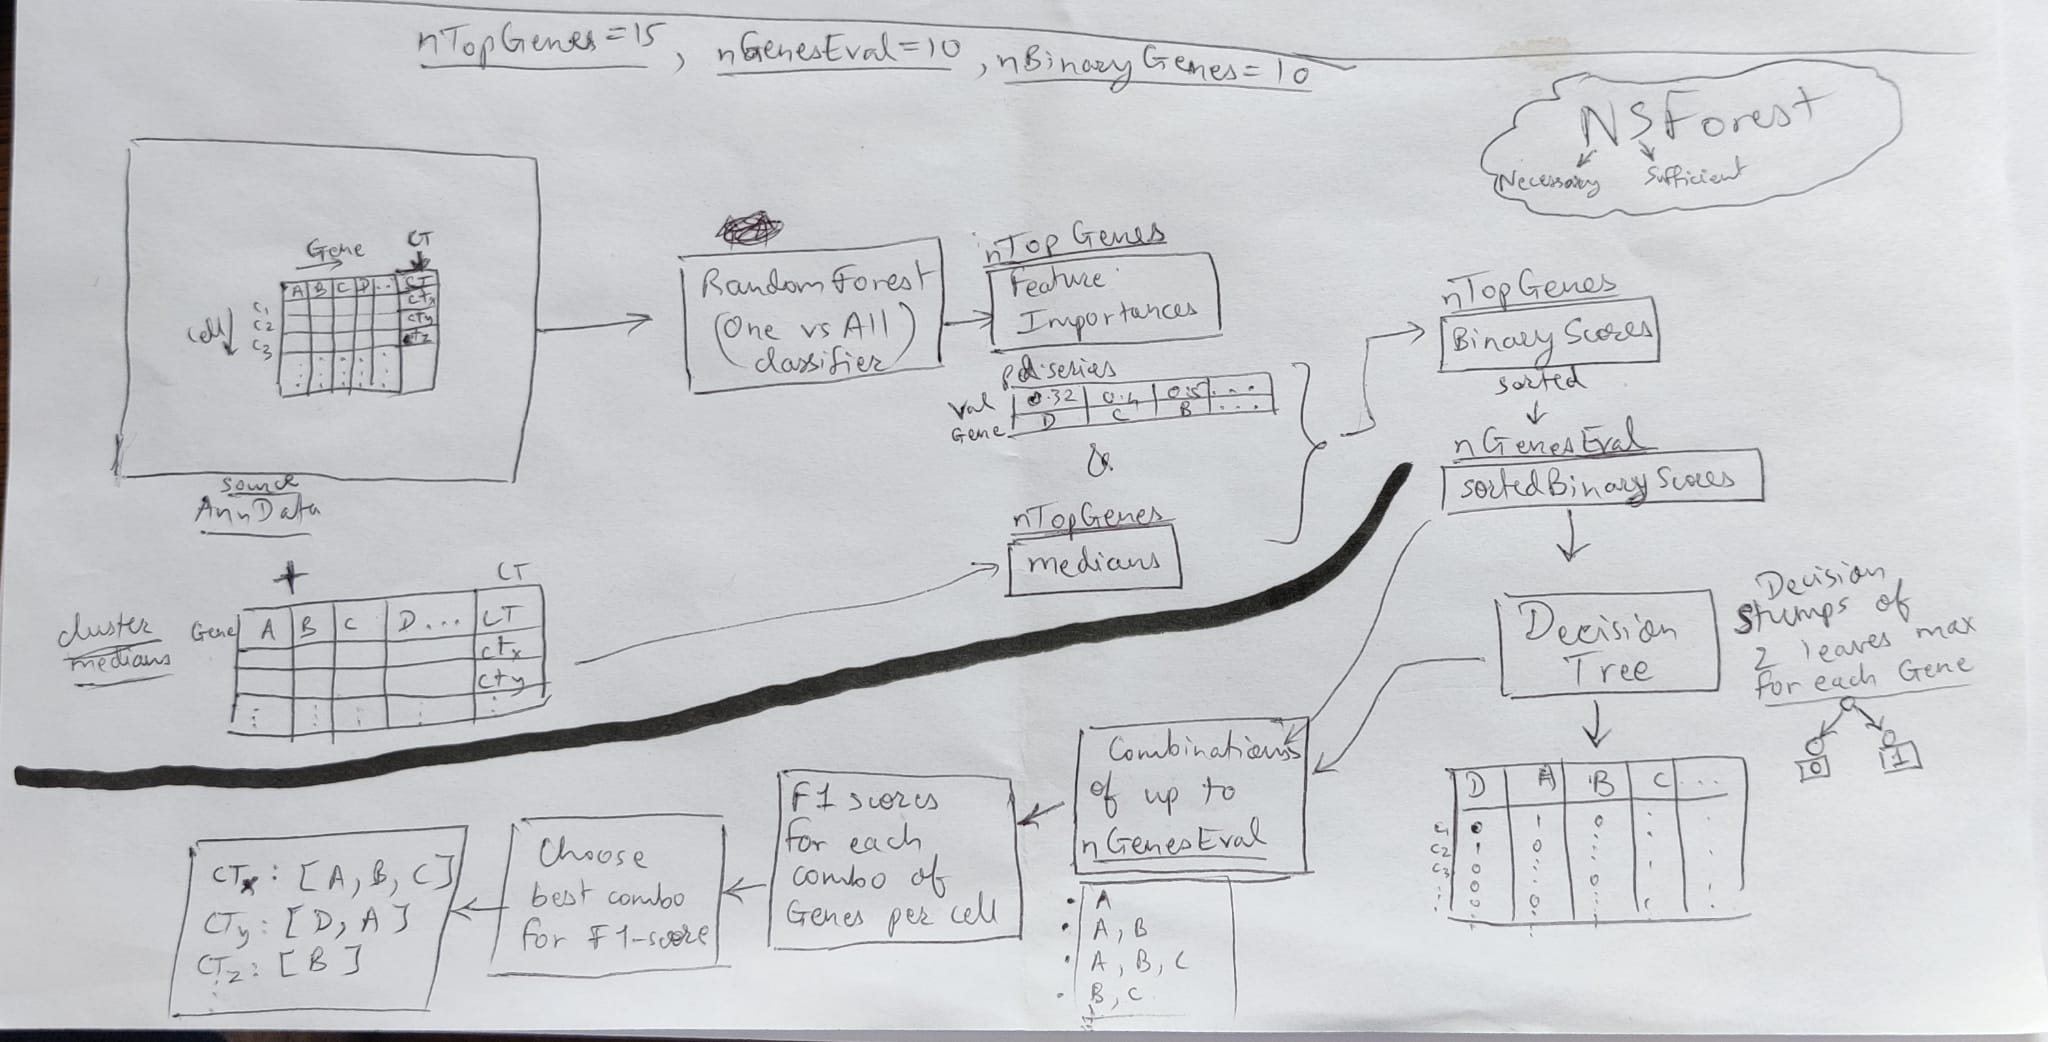 nTopGenes=15, nGenesEval=10, nBinaryGenes=10
NSForest
Necessary Sufficient
Gene CT
A B C D .. CT
cell c1 ctx
c2 cty
c3 ctz
source
AnnData
+
RandomForest
(One vs All
classifier)
nTopGenes
Feature
Importances
pd.series
Val 0.32 0.4 0.5 ...
Gene D C B ...
&
nTopGenes
medians
cluster
medians
CT
Gene A B C D... CT
ctx
cty
nTopGenes
Binary Scores
sorted
nGenesEval
sortedBinaryScores
Decision
Tree
Decision
stumps of
2 leaves max
for each Gene
0 1
D A B C ...
c1 0 1 0
c2 1 0
c3 0 0
0
0 0
Combinations
of up to
nGenesEval
• A
• A, B
• A, B, C
• B, C
F1 scores
for each
combo of
Genes per cell
Choose
best combo
for F1-score
CTx: [A, B, C]
CTy: [D, A]
CTz: [B]